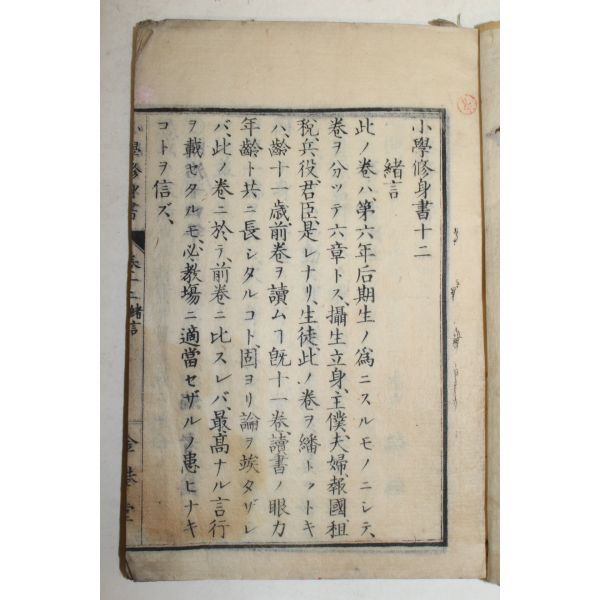 小學修身書十二
緒言
此ノ卷ハ、第六年后期生ノ爲ニスルモノニシテ、
卷ヲ分ツテ六章トス、攝生立身、主僕、夫婦、報國租
稅、兵役、君臣、是レナリ、生徒此ノ卷ヲ繙トットキ
ハ、齡十一歲前卷ヲ讀ムヿ旣十一卷、讀書ノ眼力
年齡ト共ニ長シタルコト、固ヨリ論ヲ竢タザレ
バ、此ノ卷ニ於テ、前卷ニ比スレバ、最高ナル言行
ヲ載セタルモ、必教場ニ適當セザルノ患ヒナキ
コトヲ信ズ、
小學修身書
卷十二緒言
金港堂